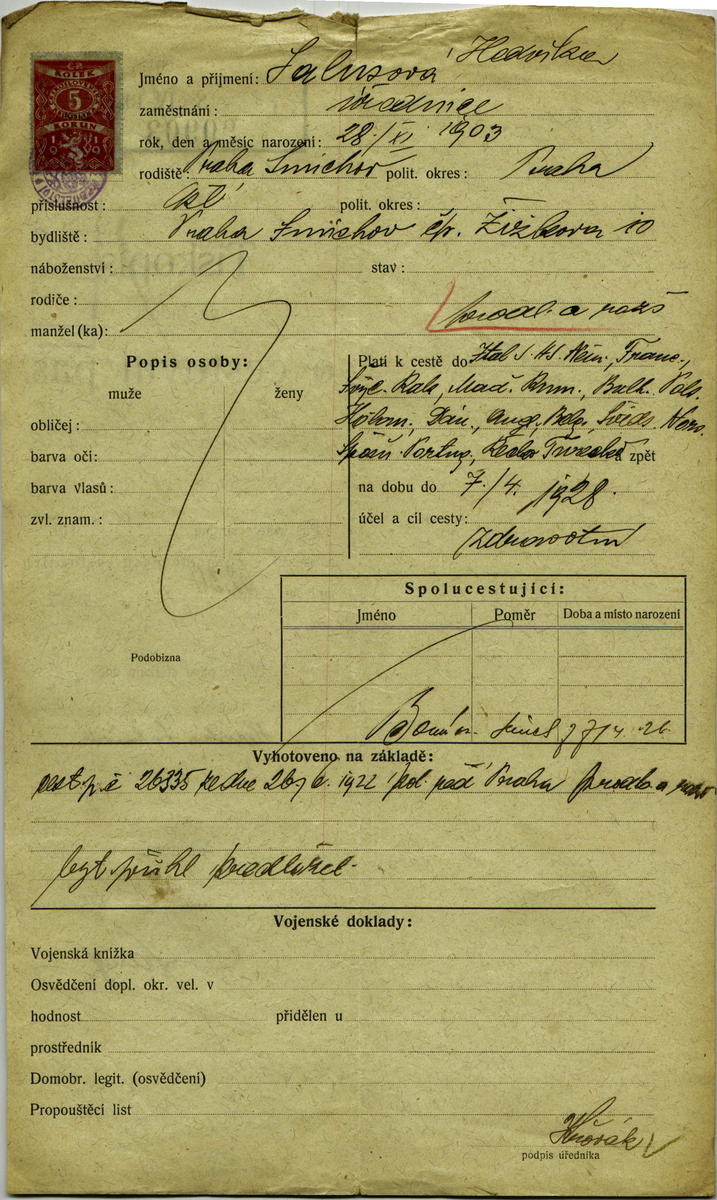 KOLEK
5
KORUN
Jméno a příjmení: Salusová Hedvika
zaměstnání: úřednice
rok, den a měsíc narození: 28./XI. 1903
rodiště: Praha Smíchov polit. okres: Praha
příslušnost: polit. okres:
bydliště: Praha Smíchov čp. Žižkova 10
náboženství: stav:
rodiče: prodl. a rozš
manžel(ka):
Popis osoby:
muže ženy
obličej:
barva očí:
barva vlasů:
zvl. znam.:
Podobizna
Platí k cestě do Ital. S. H. S. Něm., Franc.,
Švýc. Rak., Maď. Rum., Balk. Pols.
Holom., Dán., Angl., Belg., Švéds. Nors.
Španě. Portug., Řecko Turecko a zpět
na dobu do 7./4. 1928.
účel a cíl cesty:
zdravotní
Spolucestující:
Jméno Poměr Doba a místo narození
Vyhotoveno na základě:
cest. p. č 26335 ze dne 26/6. 1922 pol. řed Praha prodl. a rozš
byt přihl předložil.
Vojenské doklady:
Vojenská knížka
Osvědčení dopl. okr. vel. v
hodnost přidělen u
prostředník
Domobr. legit. (osvědčení)
Propouštěcí list
podpis úředníka